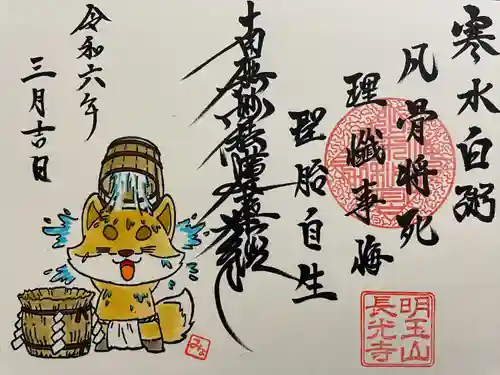 寒水白粥
凡骨将死
理懺事悔
聖胎自生
南無妙法蓮華経
令和六年
三月吉日
明玉山
長光寺